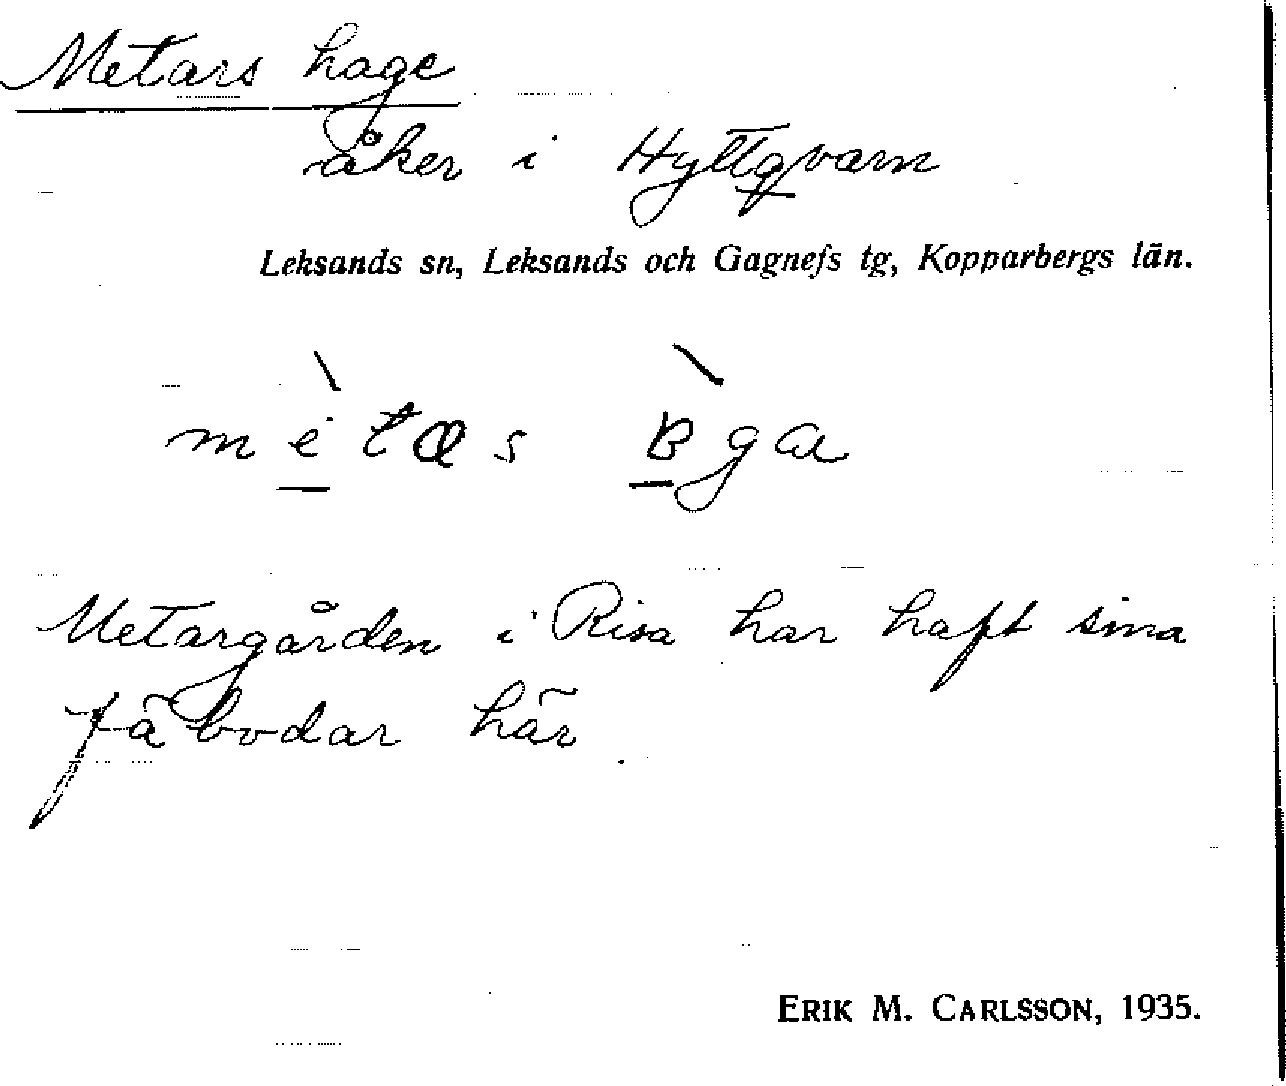 Metars hage
åker i Hyttqvarn
Leksands sn, Leksands och Gagnefs tg, Kopparbergs län.
Metargården i Risa har haft sina
fäbodar här.
ERIK M. CARLSSON, 1935.